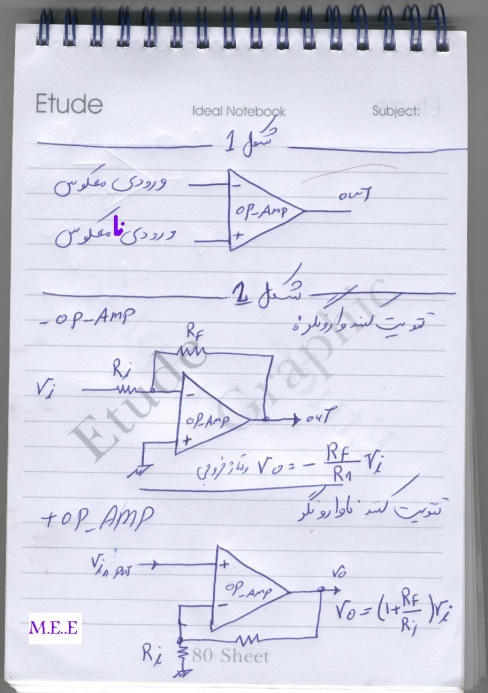 Etude
Ideal Notebook
Subject:
شکل 1
ورودی معکوس
-
OP_AMP
OUT
ورودی نامعکوس
+
شکل 2
-OP_AMP
تقویت کننده وارونگر
RF
Ri
Vi
-
OP_AMP
OUT
+
ولتاژ خروجی Vo = - RF/R1 Vi
تقویت کننده ناوارونگر
+OP_AMP
Vinput
+
OP_AMP
-
Vo
Vo = (1+RF/Ri)Vi
Ri
M.E.E
80 Sheet
Etude
Graphic